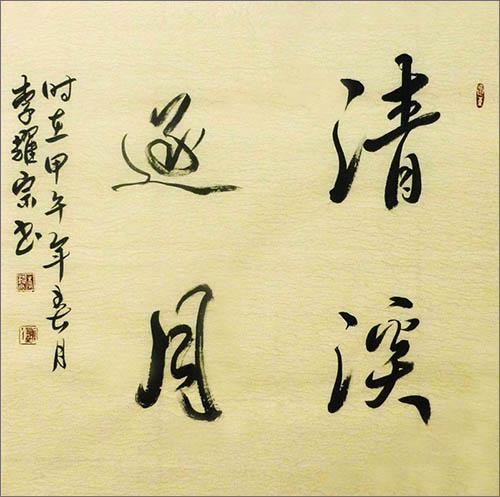 清溪
逐月
时在甲午年春月
李耀宗书